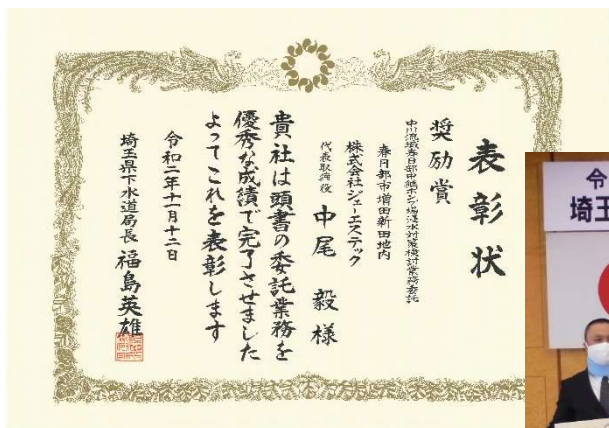 表彰状
奨励賞
中川流域春日部中継ポンプ場浸水対策検討業務委託
春日部市増田新田地内
株式会社ジェーエステック
代表取締役 中尾 毅 様
貴社は頭書の委託業務を
優秀な成績で完了させました
よってこれを表彰します
令和二年十一月十二日
埼玉県下水道局長 福島英雄
令
埼玉